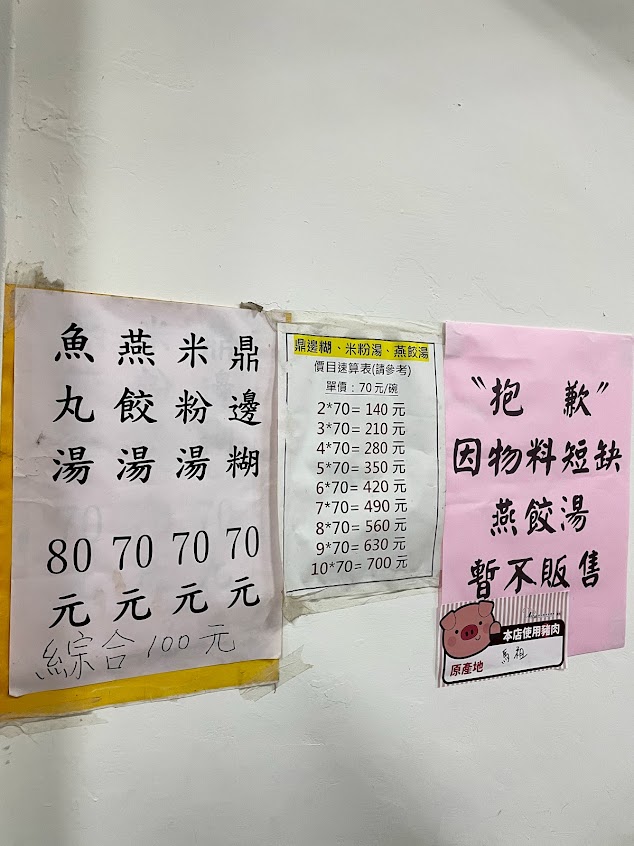 鼎邊糊 70元
米粉湯 70元
燕餃湯 70元
魚丸湯 80元
綜合100元
鼎邊糊、米粉湯、燕餃湯
價目速算表(請參考)
單價：70元/碗
2*70=140元
3*70=210元
4*70=280元
5*70=350元
6*70=420元
7*70=490元
8*70=560元
9*70=630元
10*70=700元
"抱歉"
因物料短缺
燕餃湯
暫不販售
本店使用豬肉
原產地
馬祖